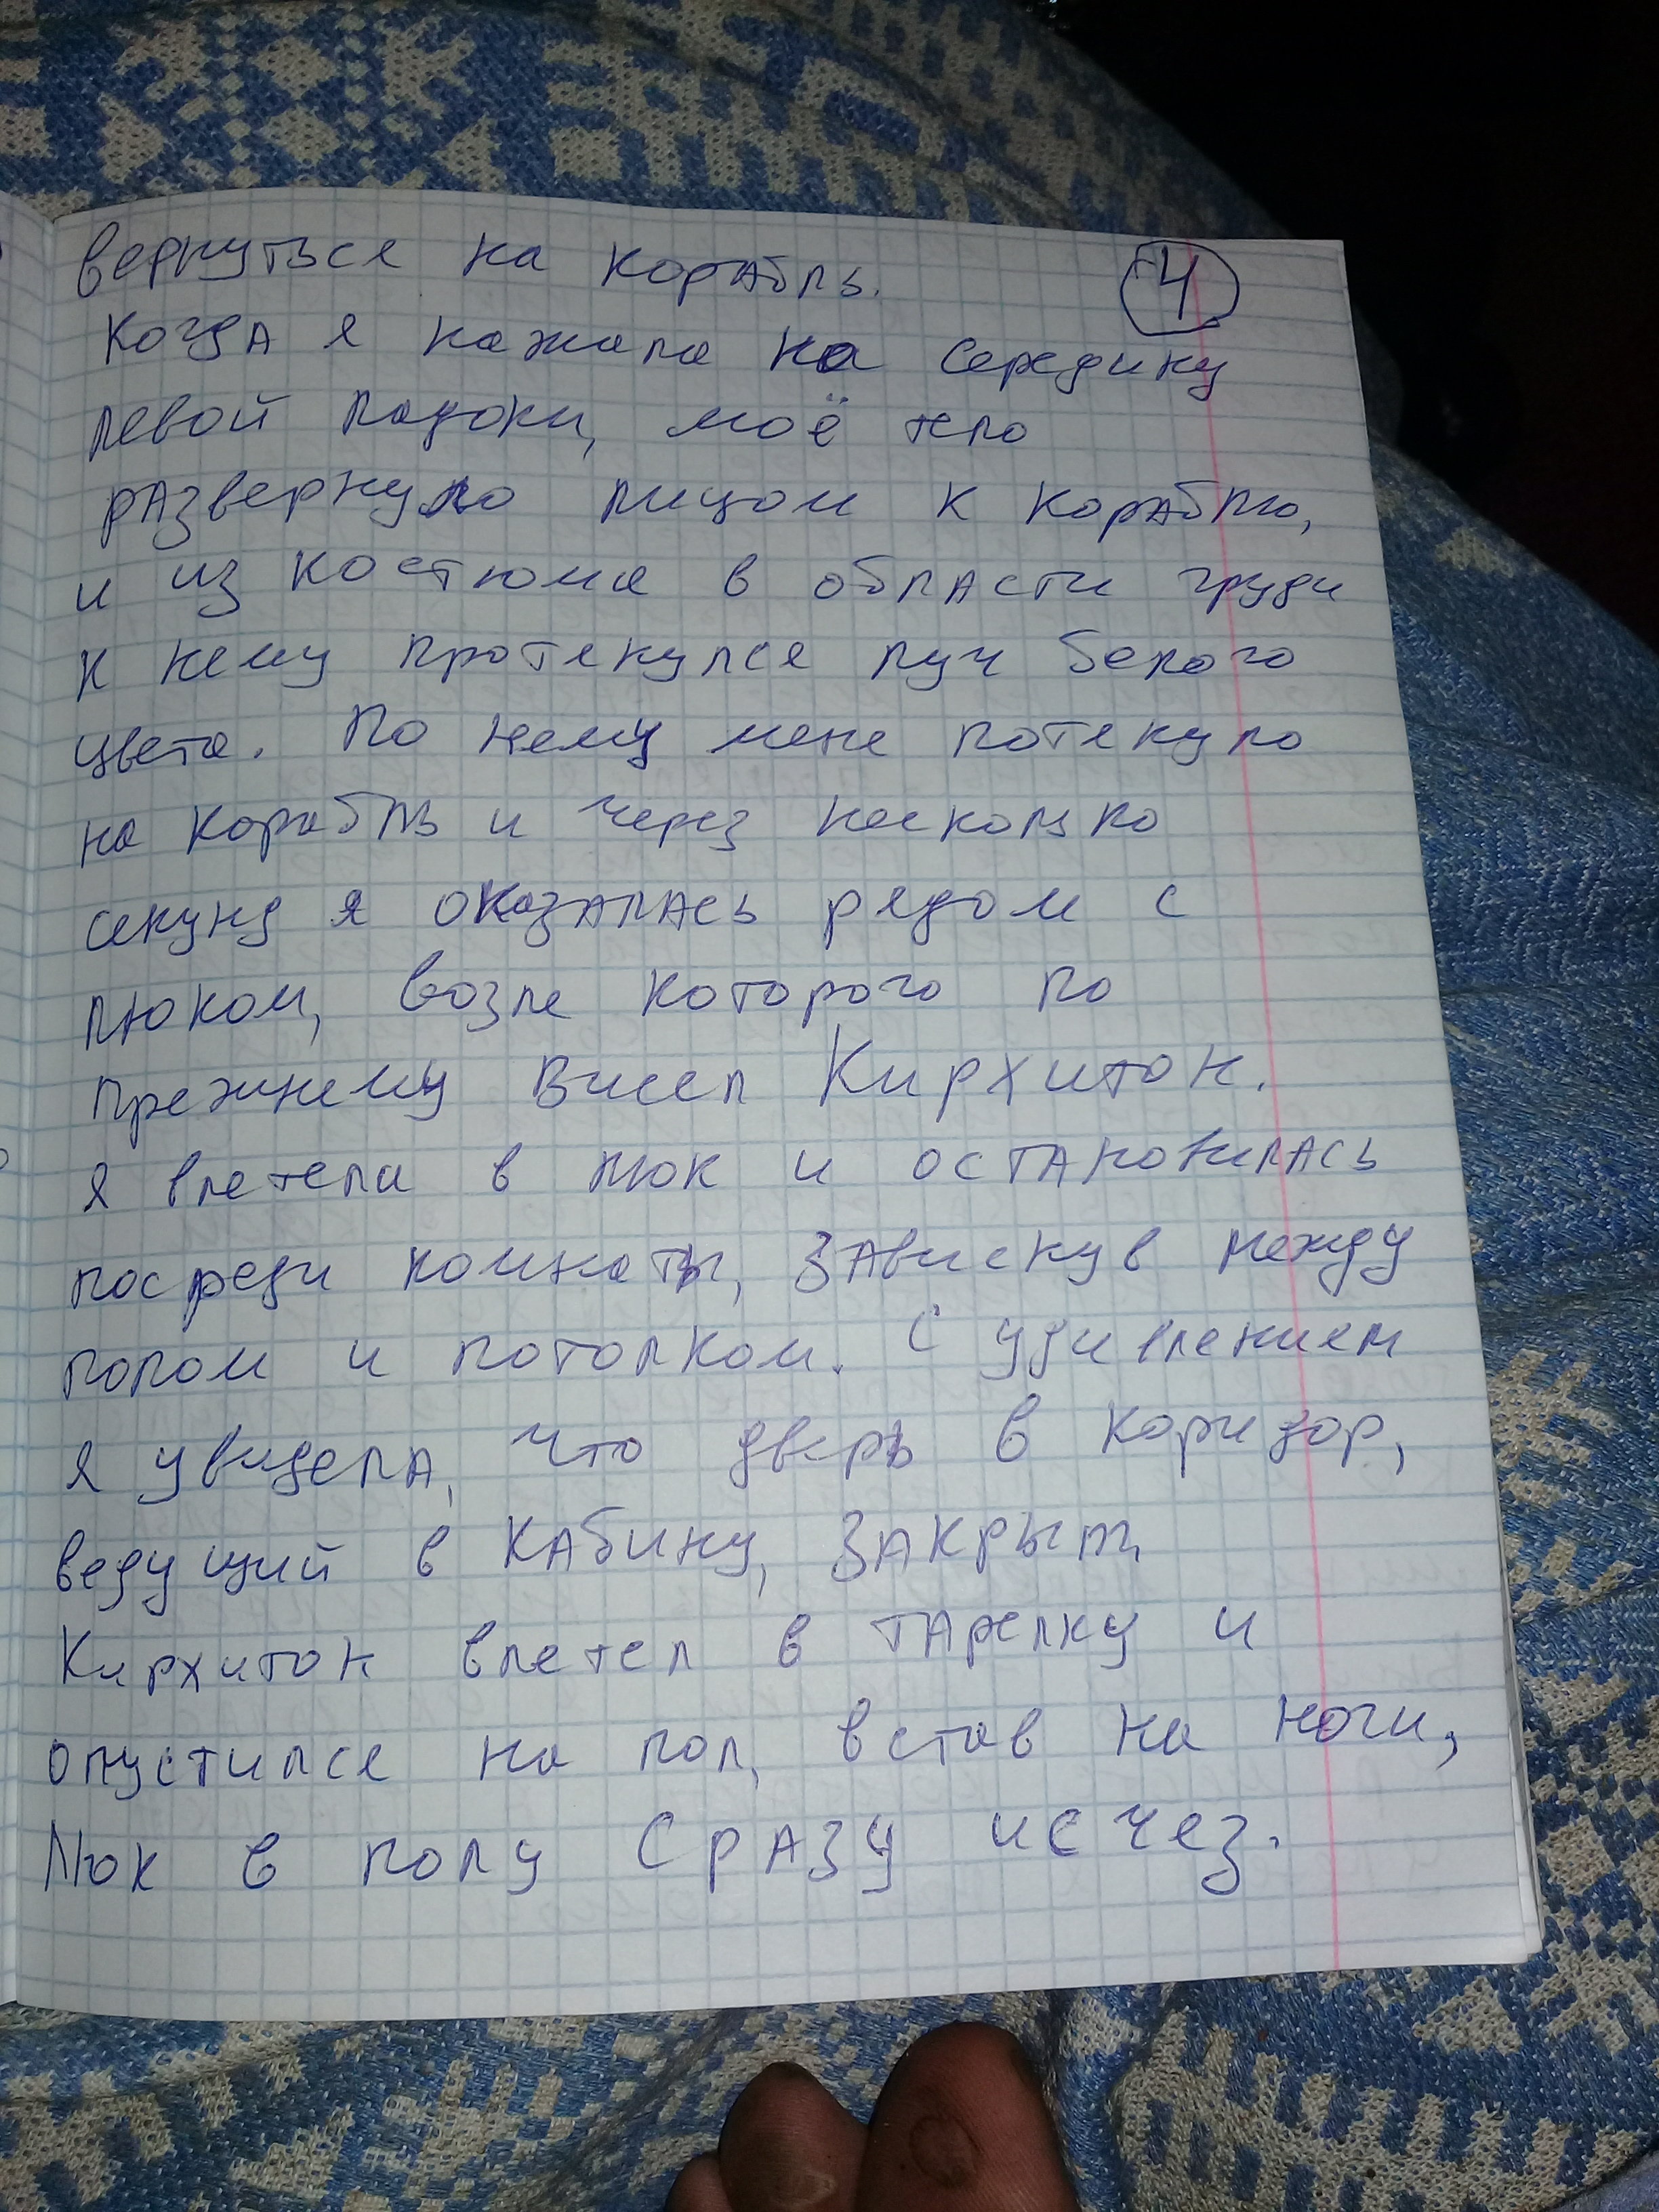 вернуться на корабль. 4
Когда я нажала на середину
левой ладони, моё тело
развернуло лицом к кораблю,
и из костюма в области груди
к нему протянулся луч белого
цвета. По нему меня потянуло
на корабль и через несколько
секунд я оказалась рядом с
люком, возле которого по
прежнему висел Кирхитон.
Я влетела в люк и остановилась
посреди комнаты, зависнув между
полом и потолком. С удивлением
я увидела, что дверь в коридор,
ведущий в кабину, закрыт.
Кирхитон влетел в тарелку и
опустился на пол, встав на ноги,
Люк в полу сразу исчез.